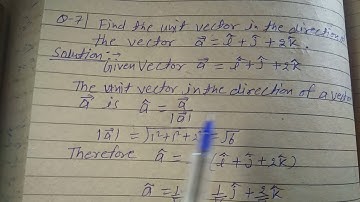 Q-7| Find the unit vector in the direction of
the vector a⃗ = î + ĵ + 2k̂.
Solution:-
Given vector a⃗ = î + ĵ + 2k̂
The unit vector in the direction of a vector
a⃗ is â = a⃗/|a⃗|
|a⃗| = √1²+1²+2² = √6
Therefore â = (î + ĵ + 2k̂)
â = 1 1 ĵ + 2 k̂